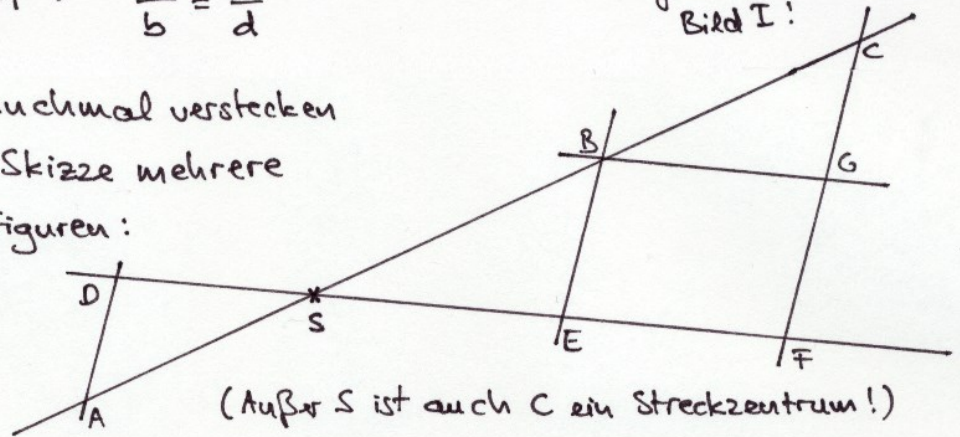 b = d
Bild I!
uchmal verstecken
Skizze mehrere
figuren:
C
B
G
D
S
E
F
A
(Außer S ist auch C ein Streckzentrum!)